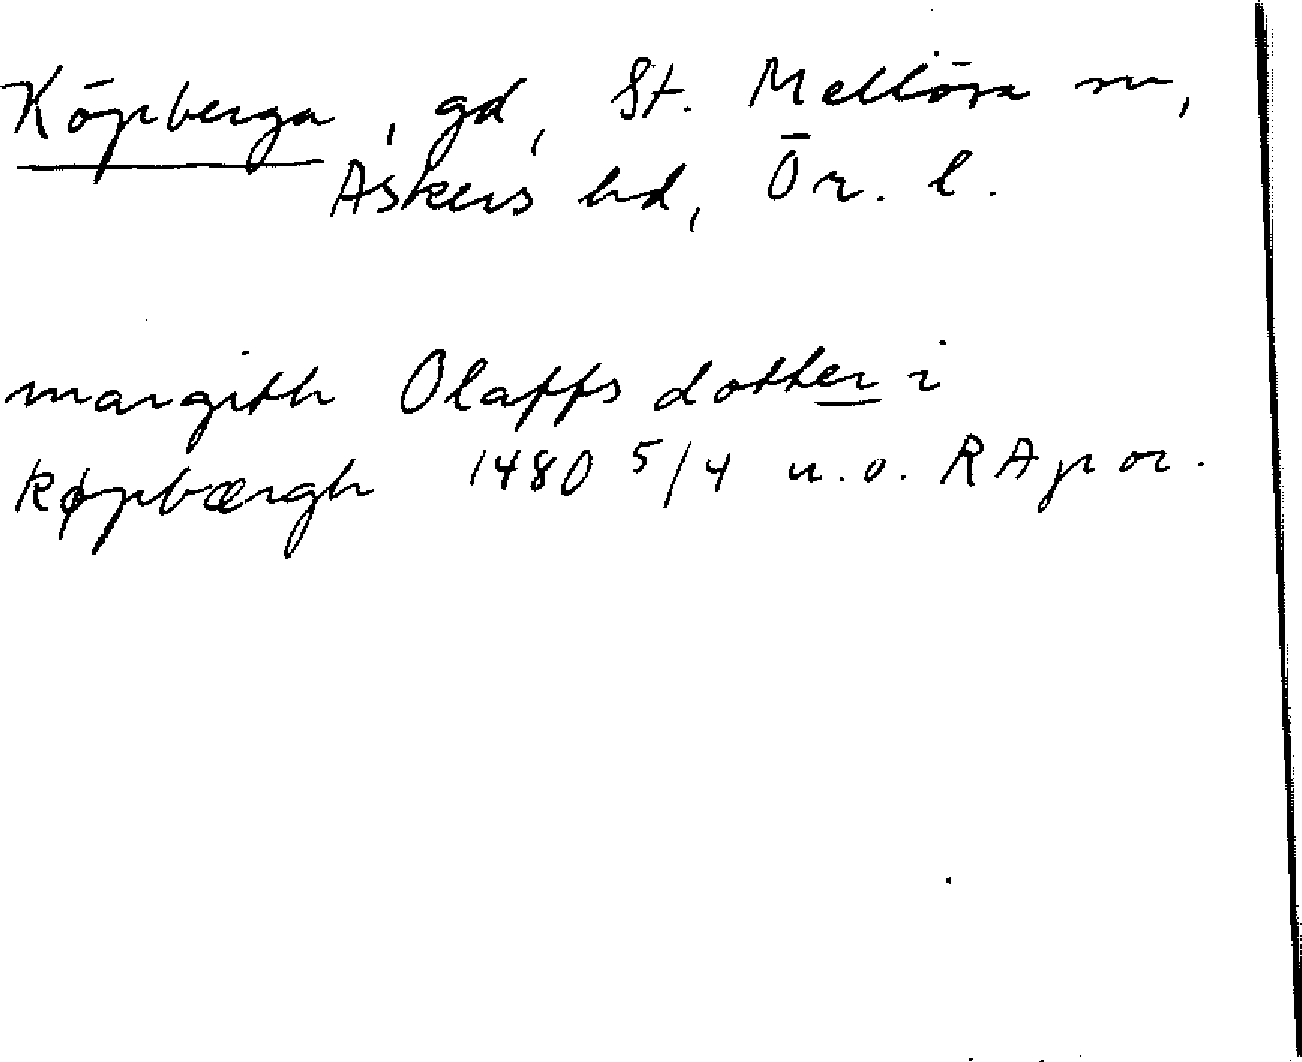 Köpberga, gd, St. Mellösa sn,
Askers hd, Ör. l.
margith Olaffs dotter i
køpbærgh 1480 5/4 u.o. RAp or.